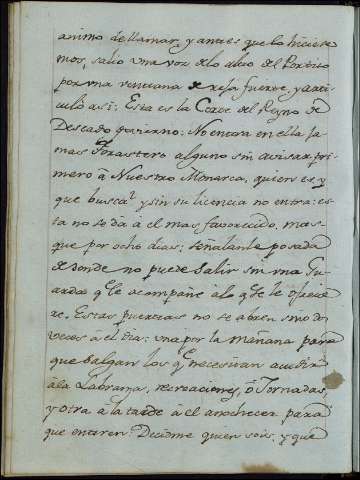 animo de llamar, y antes que lo hiciese
mos, salio una voz de lo alto del Portico
por una ventana de rexa fuerte, y arti
culò asi: Esta es la Corte del Reyno de
Deseado govierno: No entra en ella ja
mas Forastero alguno sin avisar pri
mero à Nuestro Monarca, quien es, y
que busca? y sin su licencia no entra: es
ta no se dà à el mas favorecido, mas
que por ocho dias: señalanle posada
de donde no puede salir sin una Gu
arda qe. le acompañe à lo qe. se le ofrecie
re. Estas puertas no se abren sino dos
veces à el dia: una por la mañana para
que salgan los qe. necesitan acudir
à la Labranza, recreaciones, ò Jornadas,
y otra à la tarde à el anochecer para
que entren. Decidme quien sois, y que